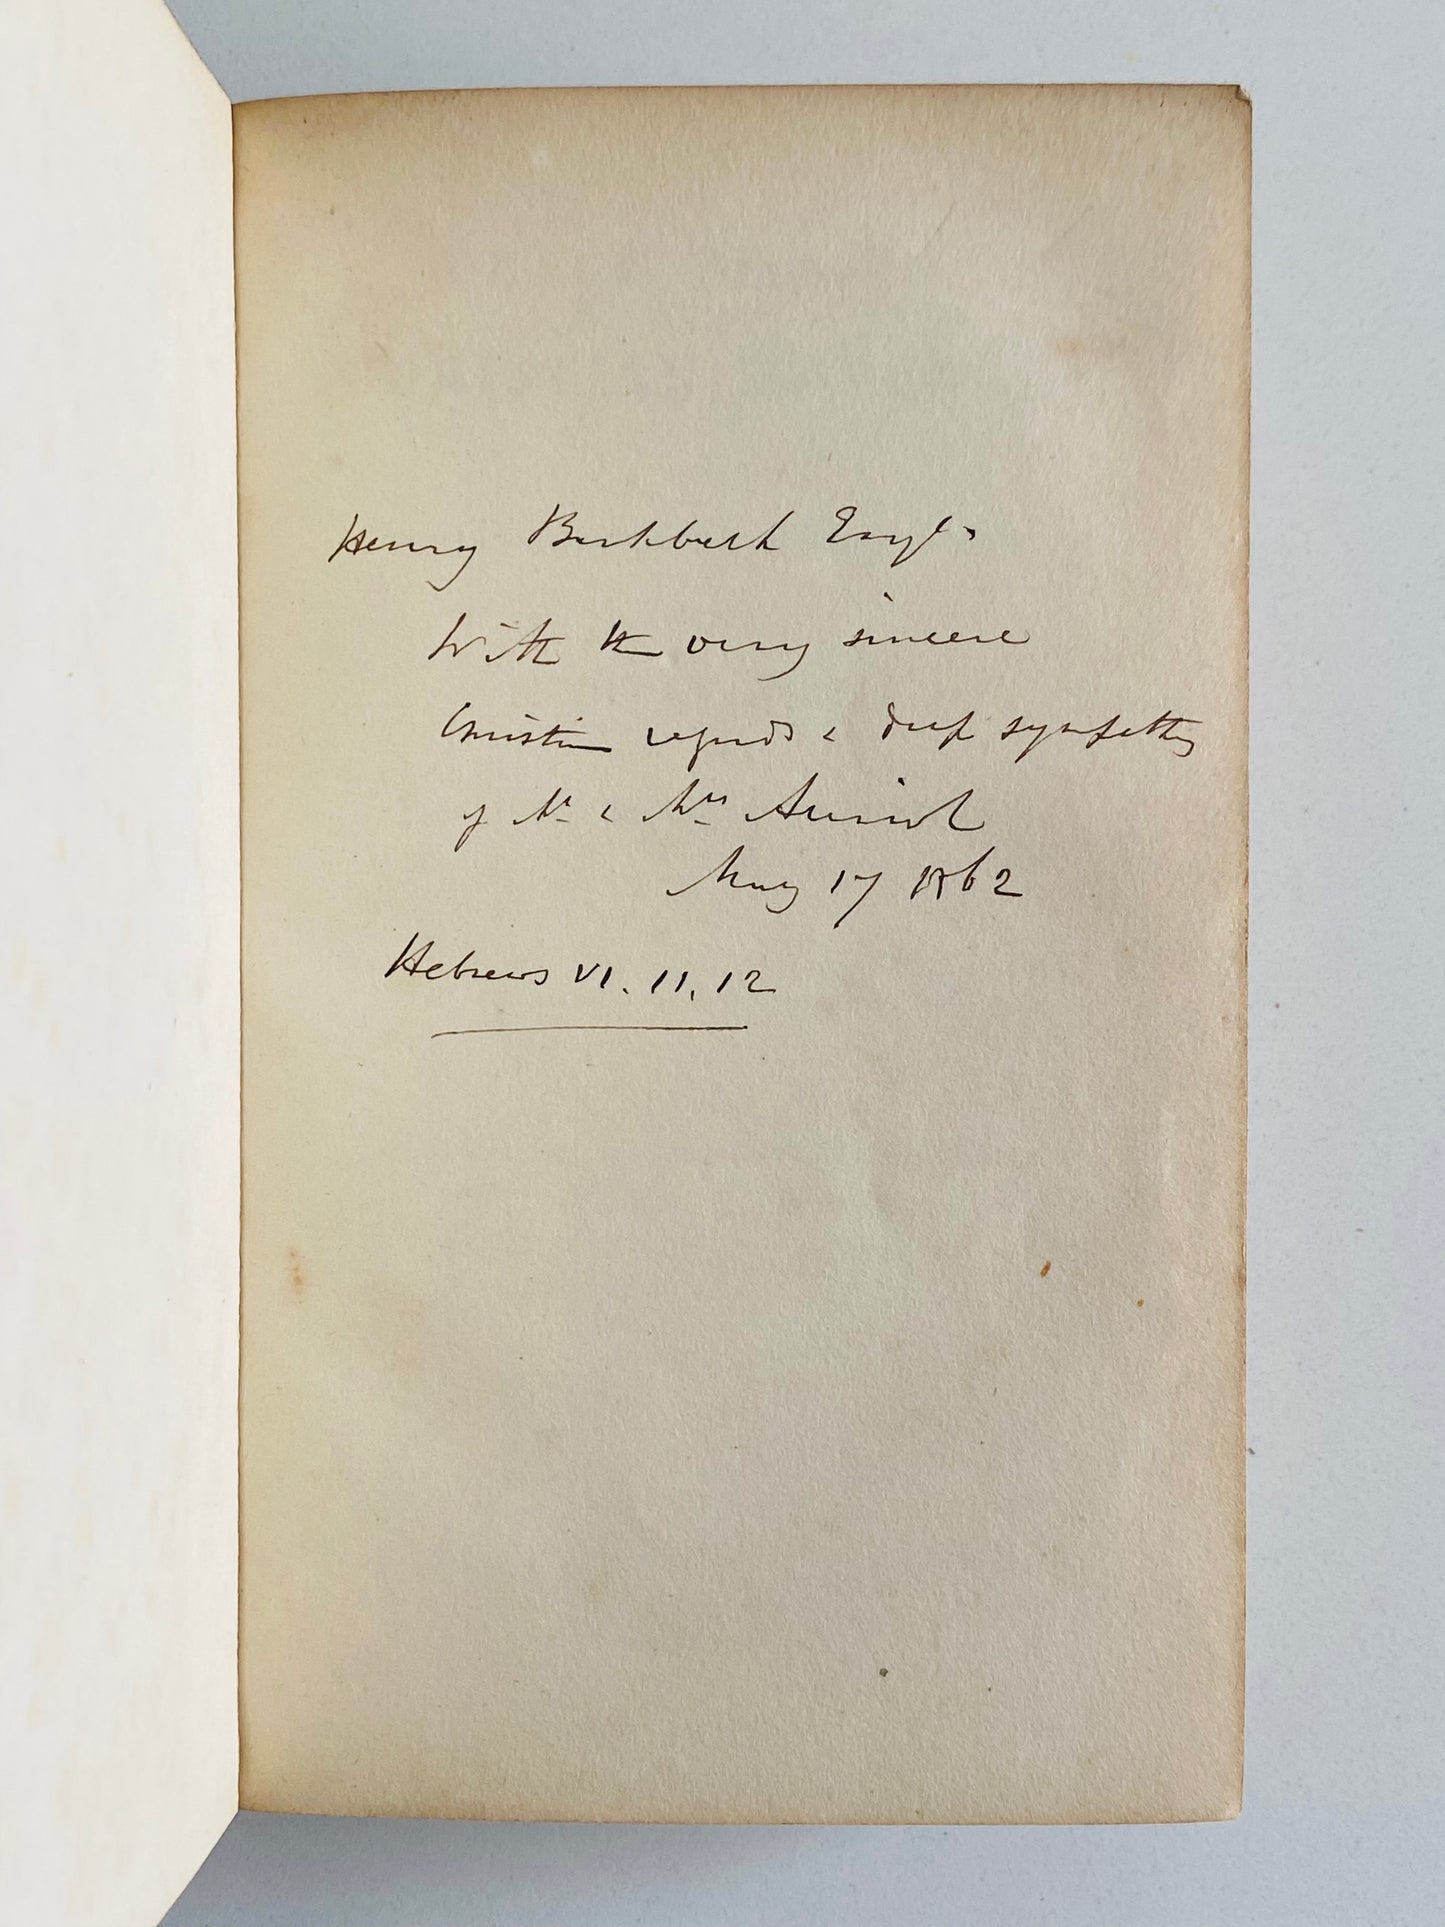 Henry Birkbeck Esqr.
With the very sincere
Christian regards & deep sympathy
of Mr & Mrs Auriol
May 17 1862
Hebrews VI. 11, 12